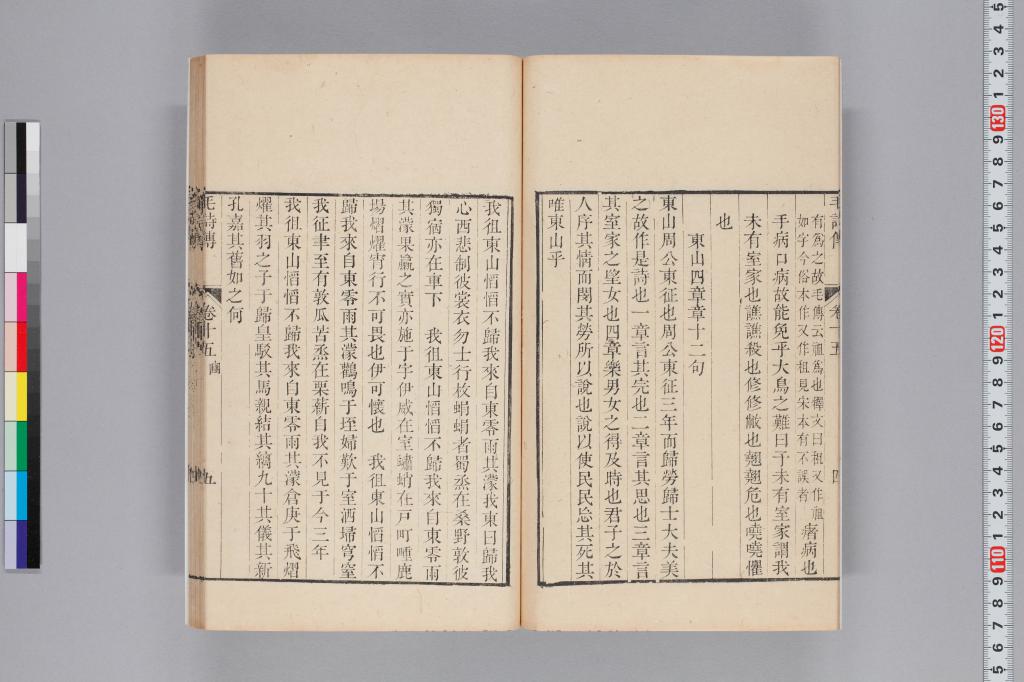 毛詩傳
卷十五
四
有爲之故毛傳云祖爲也釋文曰祖又作祖
如字今俗本作又作租見宋本有不誤者
瘏病也
手病口病故能免乎大鳥之難曰予未有室家謂我
未有室家也譙譙殺也修修敝也翹翹危也嘵嘵懼
也
東山四章章十二句
東山周公東征也周公東征三年而歸勞歸士大夫美
之故作是詩也一章言其完也二章言其思也三章言
其室家之朢女也四章樂男女之得及時也君子之於
人序其情而閔其勞所以說也說以使民民忘其死其
唯東山乎
我徂東山慆慆不歸我來自東零雨其濛我東曰歸我
心西悲制彼裳衣勿士行枚蜎蜎者蜀烝在桑野敦彼
獨宿亦在車下 我徂東山慆慆不歸我來自東零雨
其濛果臝之實亦施于宇伊威在室蠨蛸在戸町畽鹿
場熠燿宵行不可畏也伊可懷也 我徂東山慆慆不
歸我來自東零雨其濛鸛鳴于垤婦歎于室洒埽穹窒
我征聿至有敦瓜苦烝在栗薪自我不見于今三年
我徂東山慆慆不歸我來自東零雨其濛倉庚于飛熠
燿其羽之子于歸皇駁其馬親結其縭九十其儀其新
孔嘉其舊如之何
毛詩傳
卷十五
豳
五